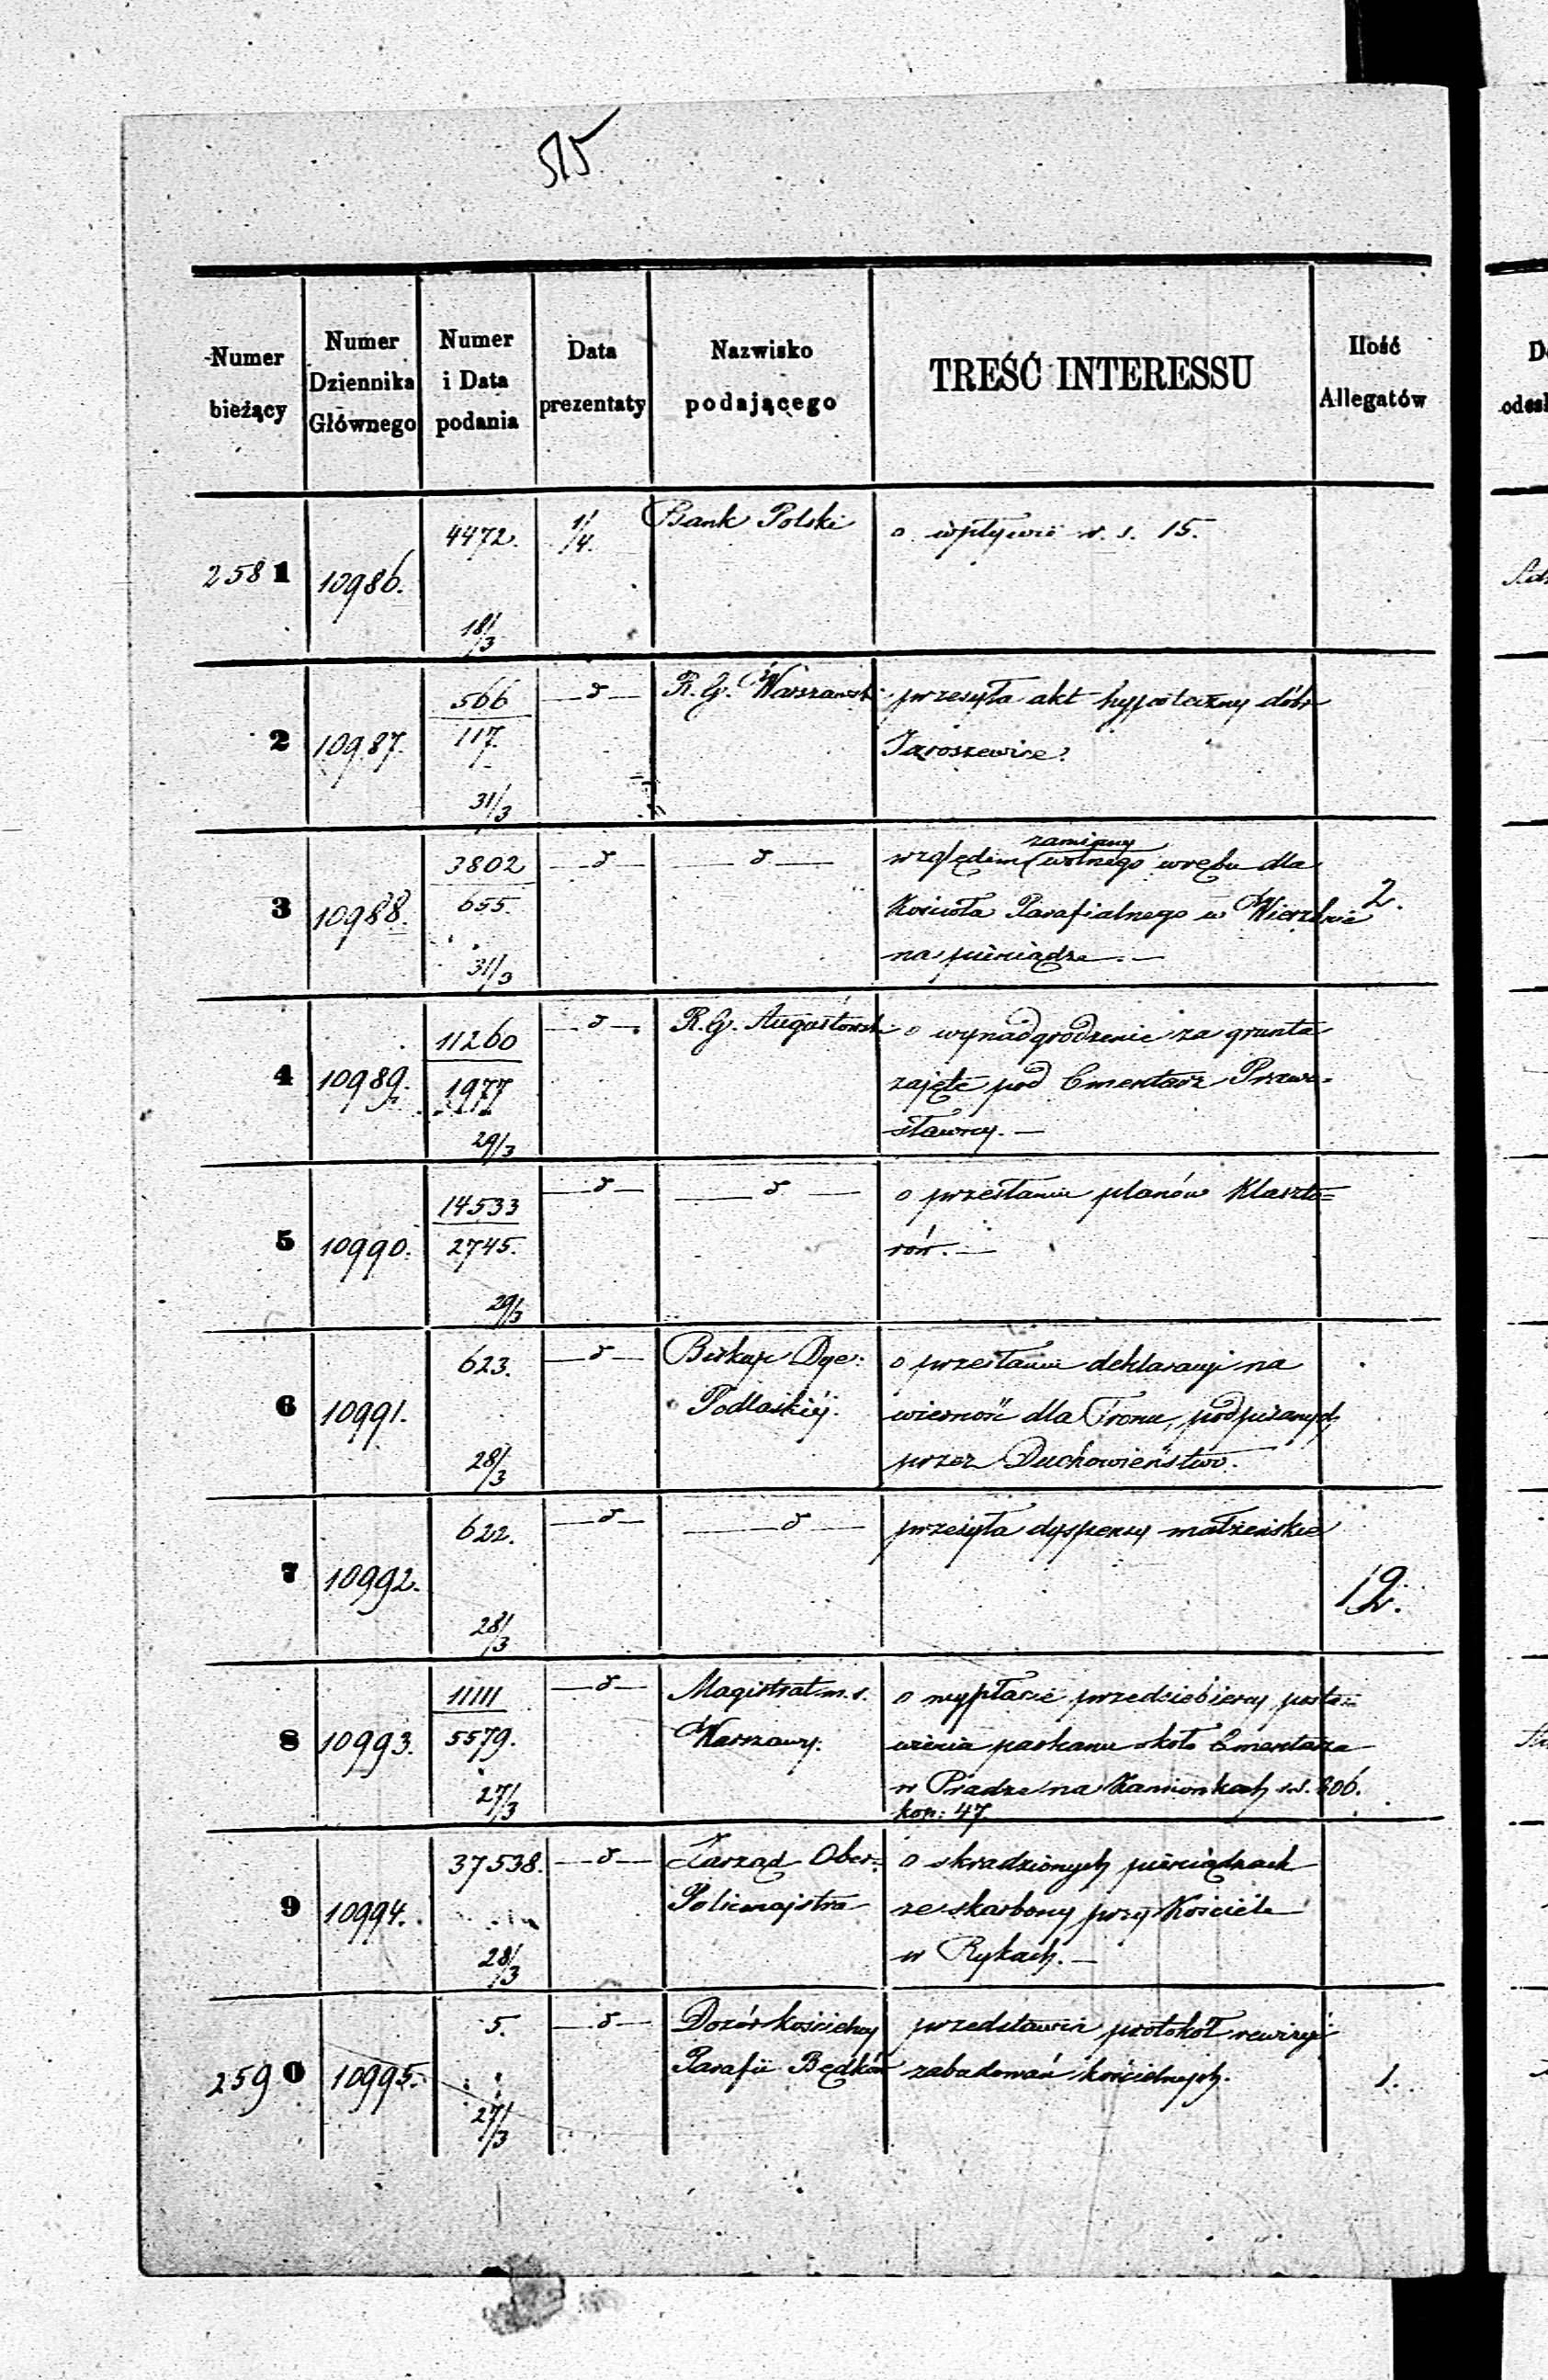 515
Numer bieżący | Numer Dziennika Głównego | Numer i Data podania | Data prezentaty | Nazwisko podającego | TREŚĆ INTERESSU | Ilość Allegatów
2581 | 10986. | 4472. 18/3 | 1/4. | Bank Polski | o wpływie r. s. 15.
2 | 10987. | 566 117. 31/3 | —d— | R. G. Warszawski | przesyła akt hypoteczny dóbr
Jaroszewice
3 | 10988. | 3802 655. 31/3 | —d— | —d— | względem (zamiany wolnego wrębu dla
Kościoła Parafialnego w Wierzbnie | 2.
na pieniądze. —
4 | 10989. | 11260 1977 29/3 | —d— | R. G. Augustowski | o wynadgrodzenie za grunta
zajęte pod Cmentarz Prawo=
sławny. —
5 | 10990. | 14533 2745. 29/3 | —d— | —d— | o przesłanie planów Klaszto=
rów. —
6 | 10991. | 623. 28/3 | —d— | Biskup Dye: | o przesłaniu deklaracyi na
Podlaskiéj. | wierność dla Tronu, podpisanych
przez Duchowieństwo.
7 | 10992. | 622. 28/3 | —d— | —d— | przesyła dyspensy małżeńskie | 12.
8 | 10993. | 11111 5579. 27/3 | —d— | Magistrat m. s. | o wypłacie przedsiebiercy posta=
Warszawy. | wienia parkanu około Cmentarza
w Pradze na Kamionkach r.s. 306.
kop: 47.
9 | 10994. | 37538. 28/3 | —d— | Zarząd Ober= | o skradzionych pieniądzach
Policmajstra | ze skarbony przy Kościele
w Rykach. —
2590 | 10995. | 5. 27/3 | —d— | Dozór kościelny | przedstawia protokół rewizyi
Parafii Będków | zabudowań kościelnych. | 1.